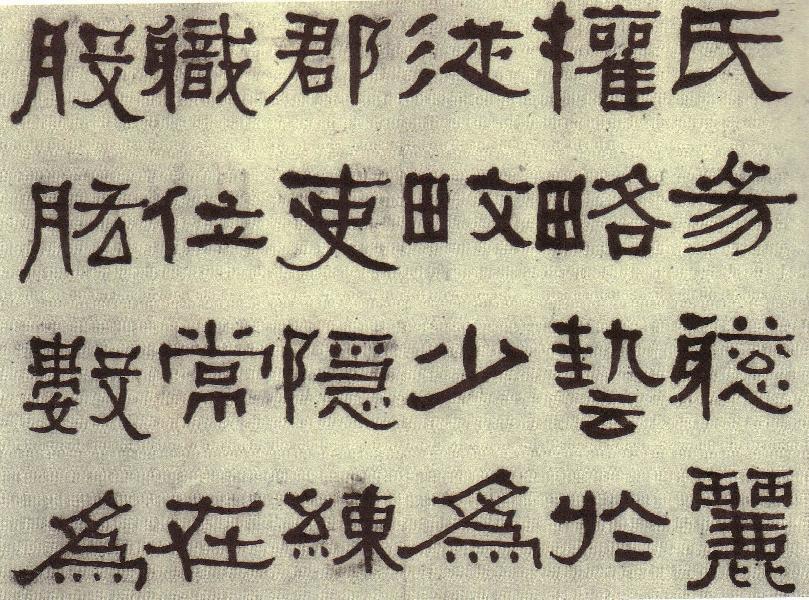 氏易聰麗
權略藝於
從畋少為
郡吏隱練
職位常在
股肱數為